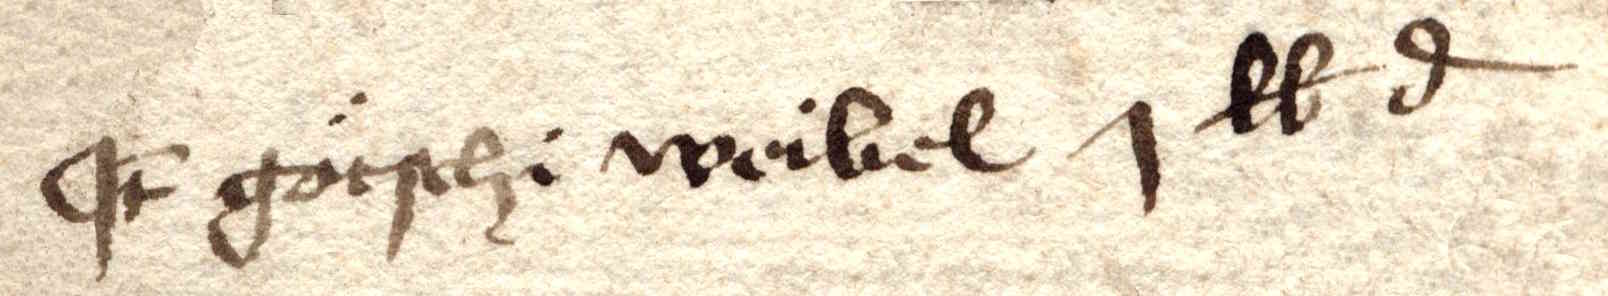 It götschi weibel 1 lb d